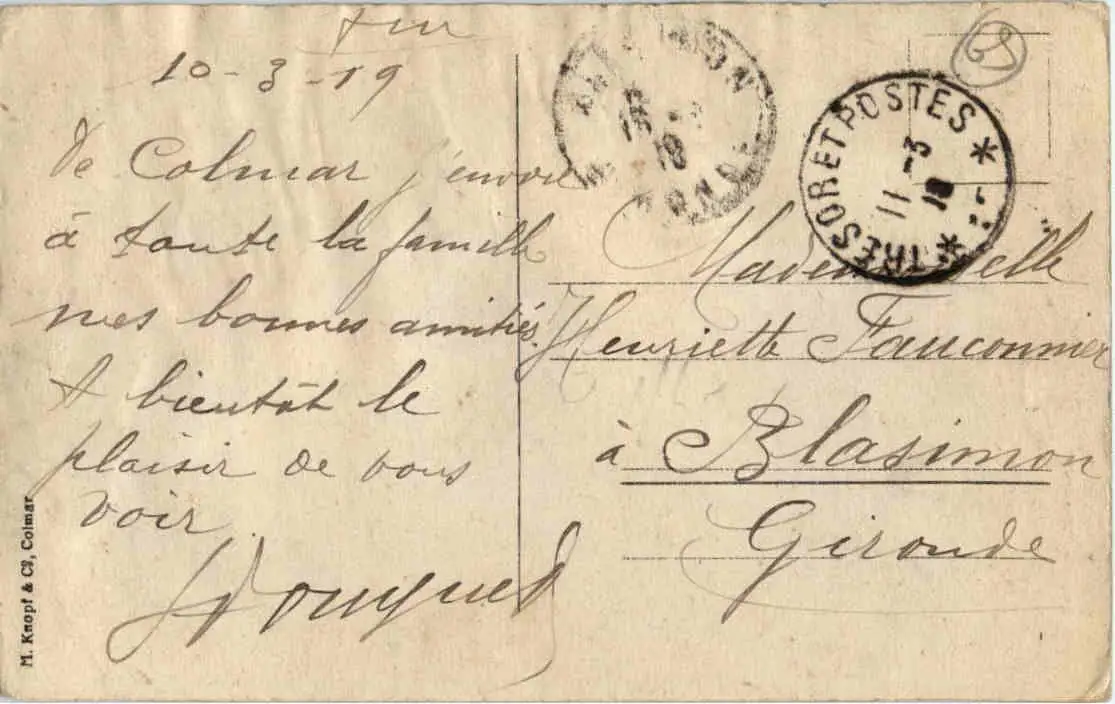 10-3-19
de Colmar j'envoie
à toute la famille
mes bonnes amitiés.
A bientôt le
plaisir de vous
voir
M. Knopf & Cº, Colmar
TRESOR ET POSTES
11-3
19
Mademoiselle
Henriette Fauconnier
à Blasimon
Gironde